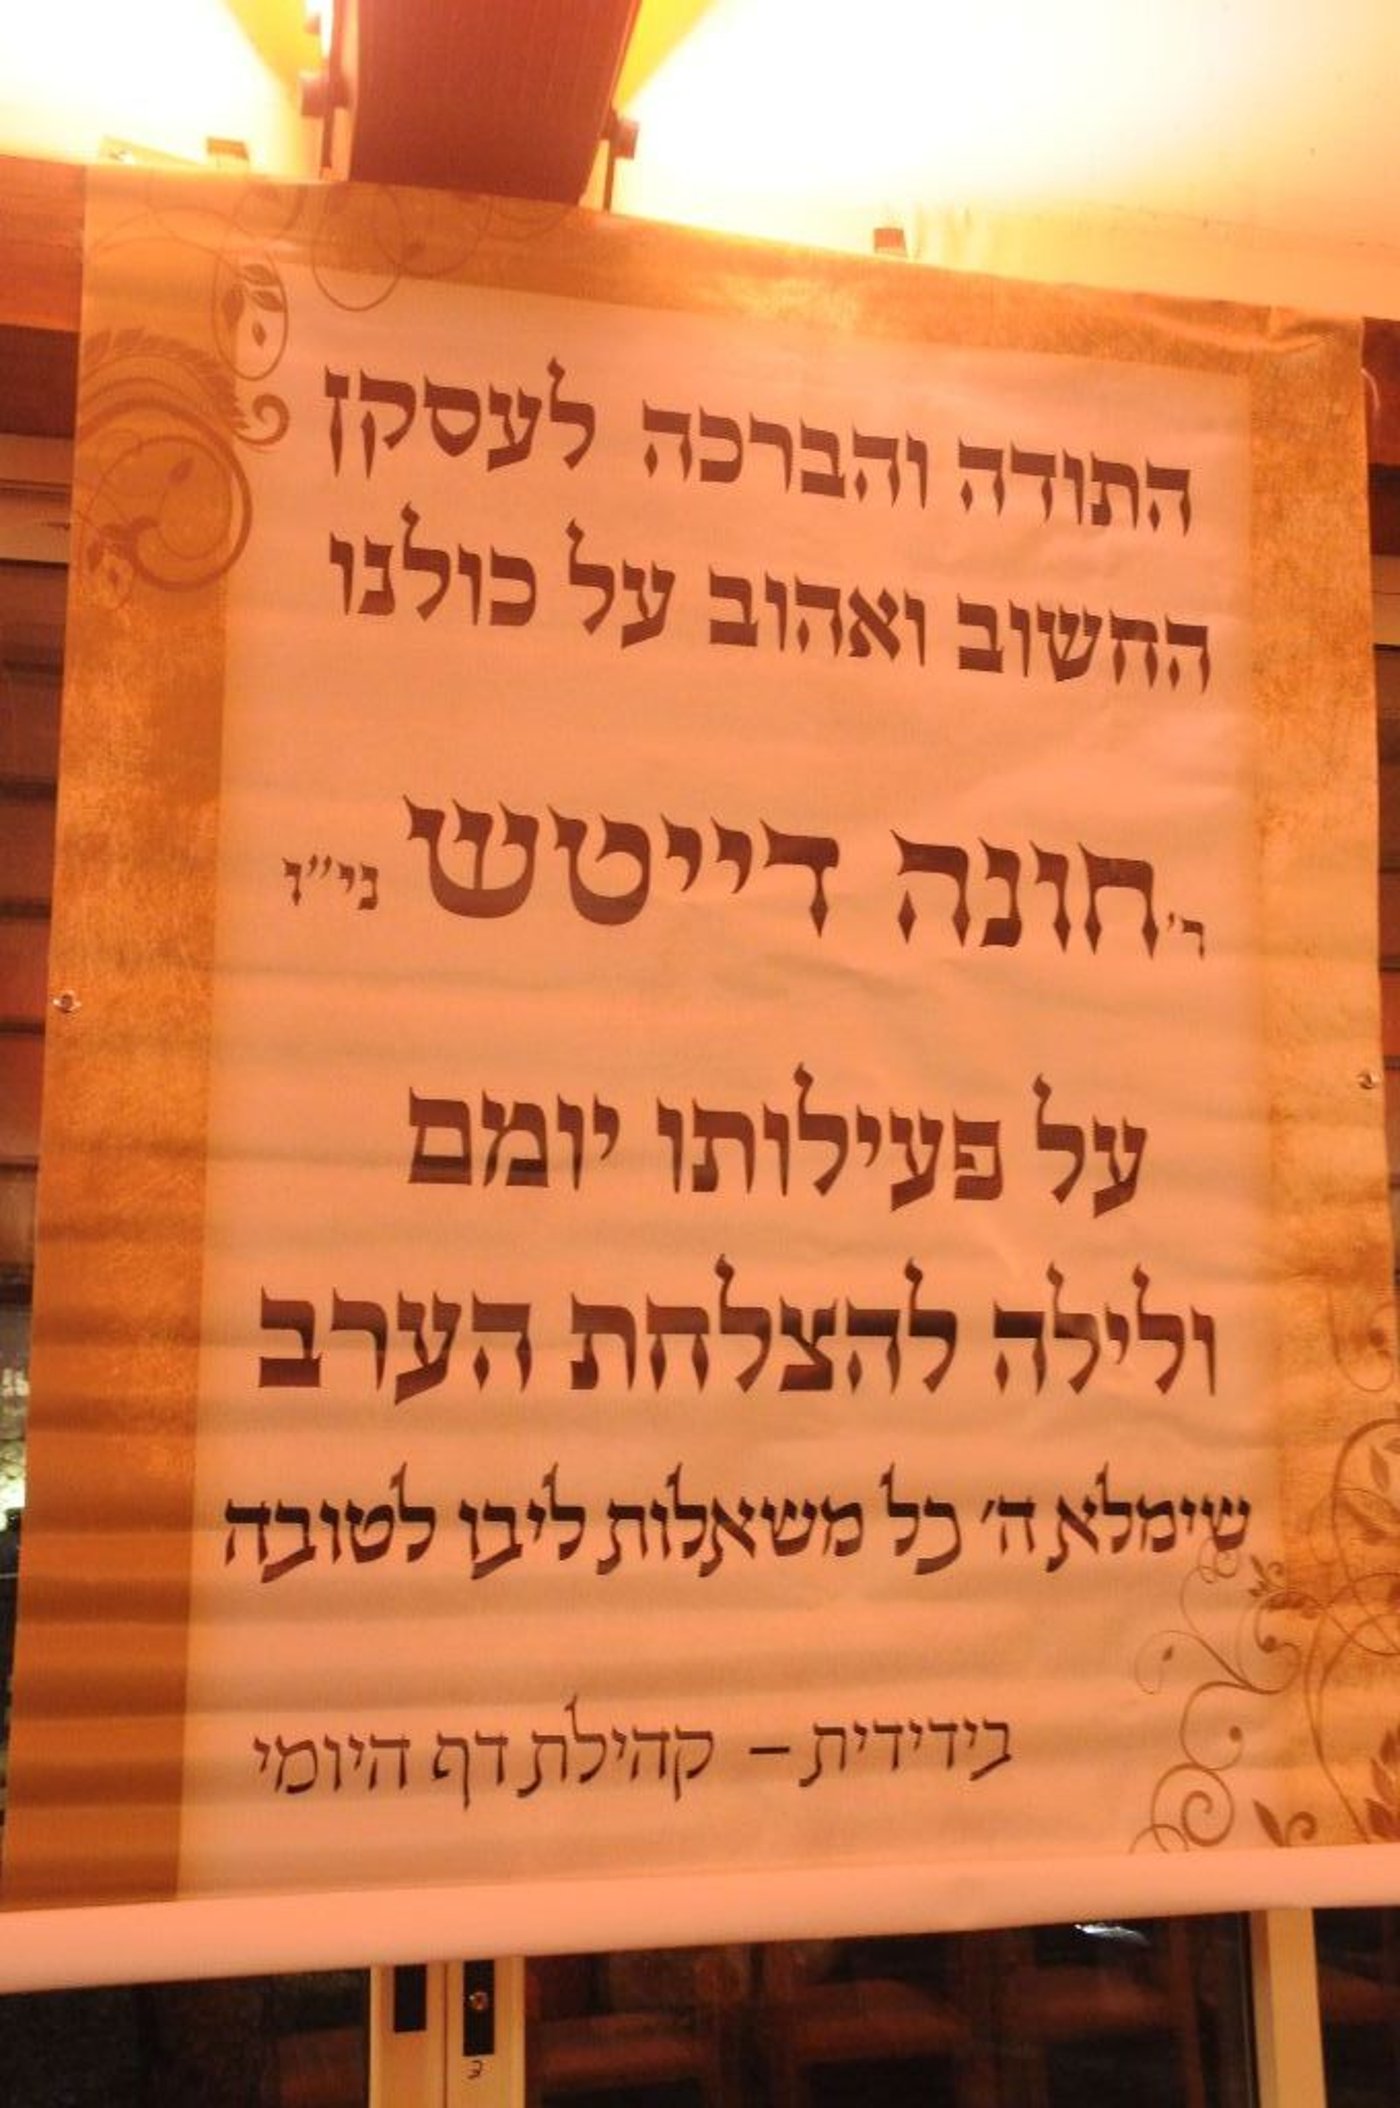 התודה והברכה לעסקן
החשוב ואהוב על כולנו
ר' חונה דייטש ני"ו
על פעילותו יומם
ולילה להצלחת הערב
שימלא ה' כל משאלות ליבו לטובה
בידידית – קהילת דף היומי